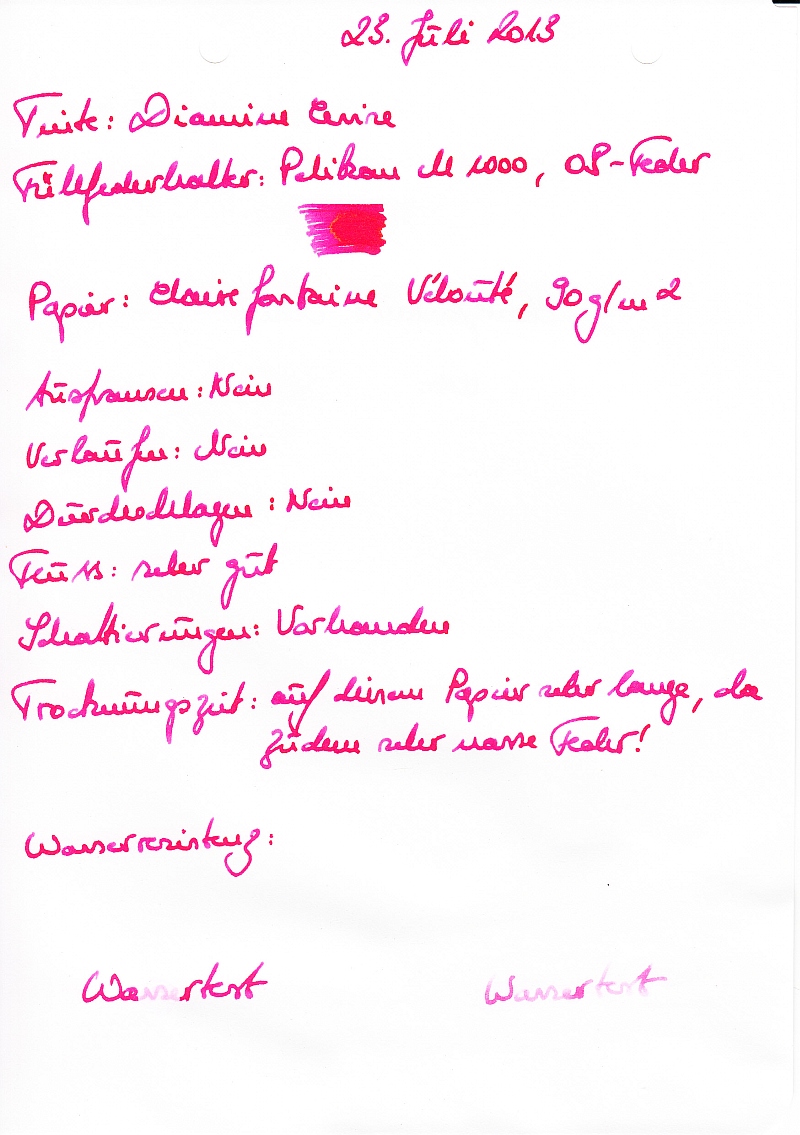 23. Juli 2013
Tinte: Diamine Cerise
Füllfederhalter: Pelikan M 1000, OB-Feder
Papier: Clairefontaine Vélouté, 90g/m2
Ausfransen: Nein
Verlaufen: Nein
Durchschlagen: Nein
Fluss: sehr gut
Schattierungen: Vorhanden
Trocknungszeit: auf diesem Papier sehr lange, da
zudem sehr nasse Feder!
Wasserresistenz:
Wassertest Wassertest